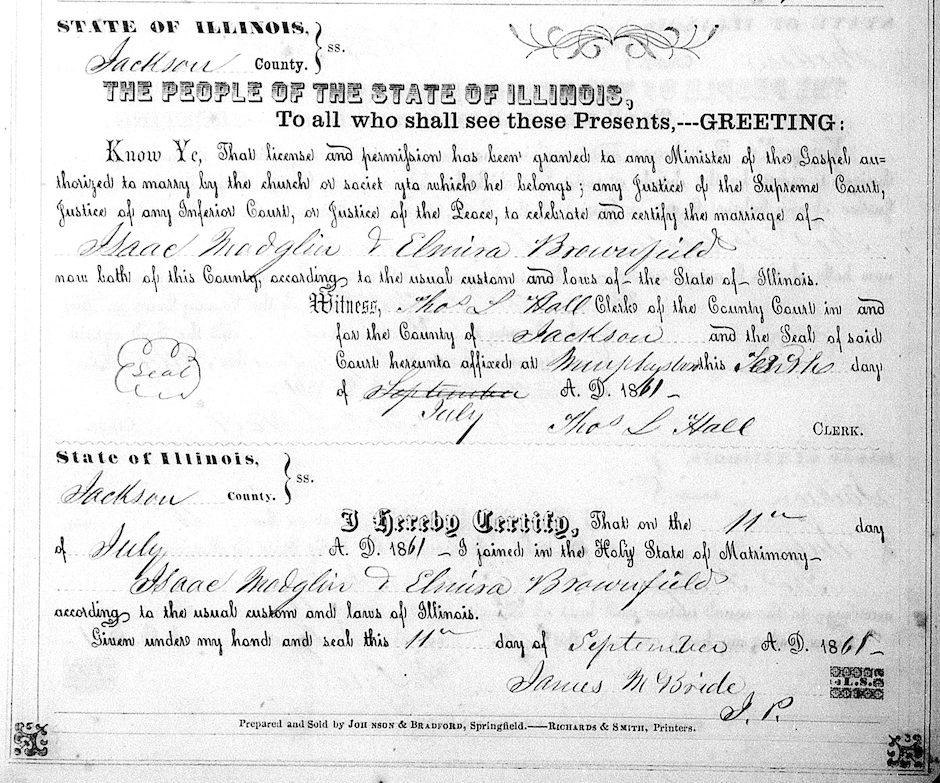 STATE OF ILLINOIS,
Jackson County. } ss.
THE PEOPLE OF THE STATE OF ILLINOIS,
To all who shall see these Presents,---GREETING:
Know Ye, That license and permission has been granted to any Minister of the Gospel au-
thorized to marry by the church or societ yto which he belongs; any Justice of the Supreme Court,
Justice of any Inferior Court, or Justice of the Peace, to celebrate and certify the marriage of
Isaac Modglin & Elmira Brownfield
now both of this County, according to the usual custom and laws of the State of Illinois.
Witness, Thos L Hall Clerk of the County Court in and
for the County of Jackson and the Seal of said
Court hereunto affixed at Murphysboro this Tenth day
of September A. D. 1861
July
Seal
Thos L Hall CLERK.
State of Illinois,
Jackson County. } ss.
I Hereby Certify, That on the 11th day
of July A. D. 1861 - I joined in the Holy State of Matrimony
Isaac Modglin & Elmira Brownfield
according to the usual custom and laws of Illinois.
Given under my hand and seal this 11th day of September A. D. 1861
James McBride L.S.
J. P.
Prepared and Sold by JOHNSON & BRADFORD, Springfield.——RICHARDS & SMITH, Printers.